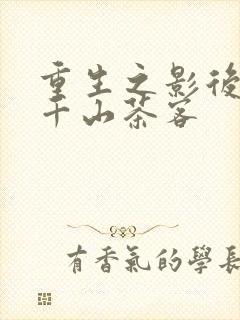 重生之影後
千山茶客
有香氣的學長